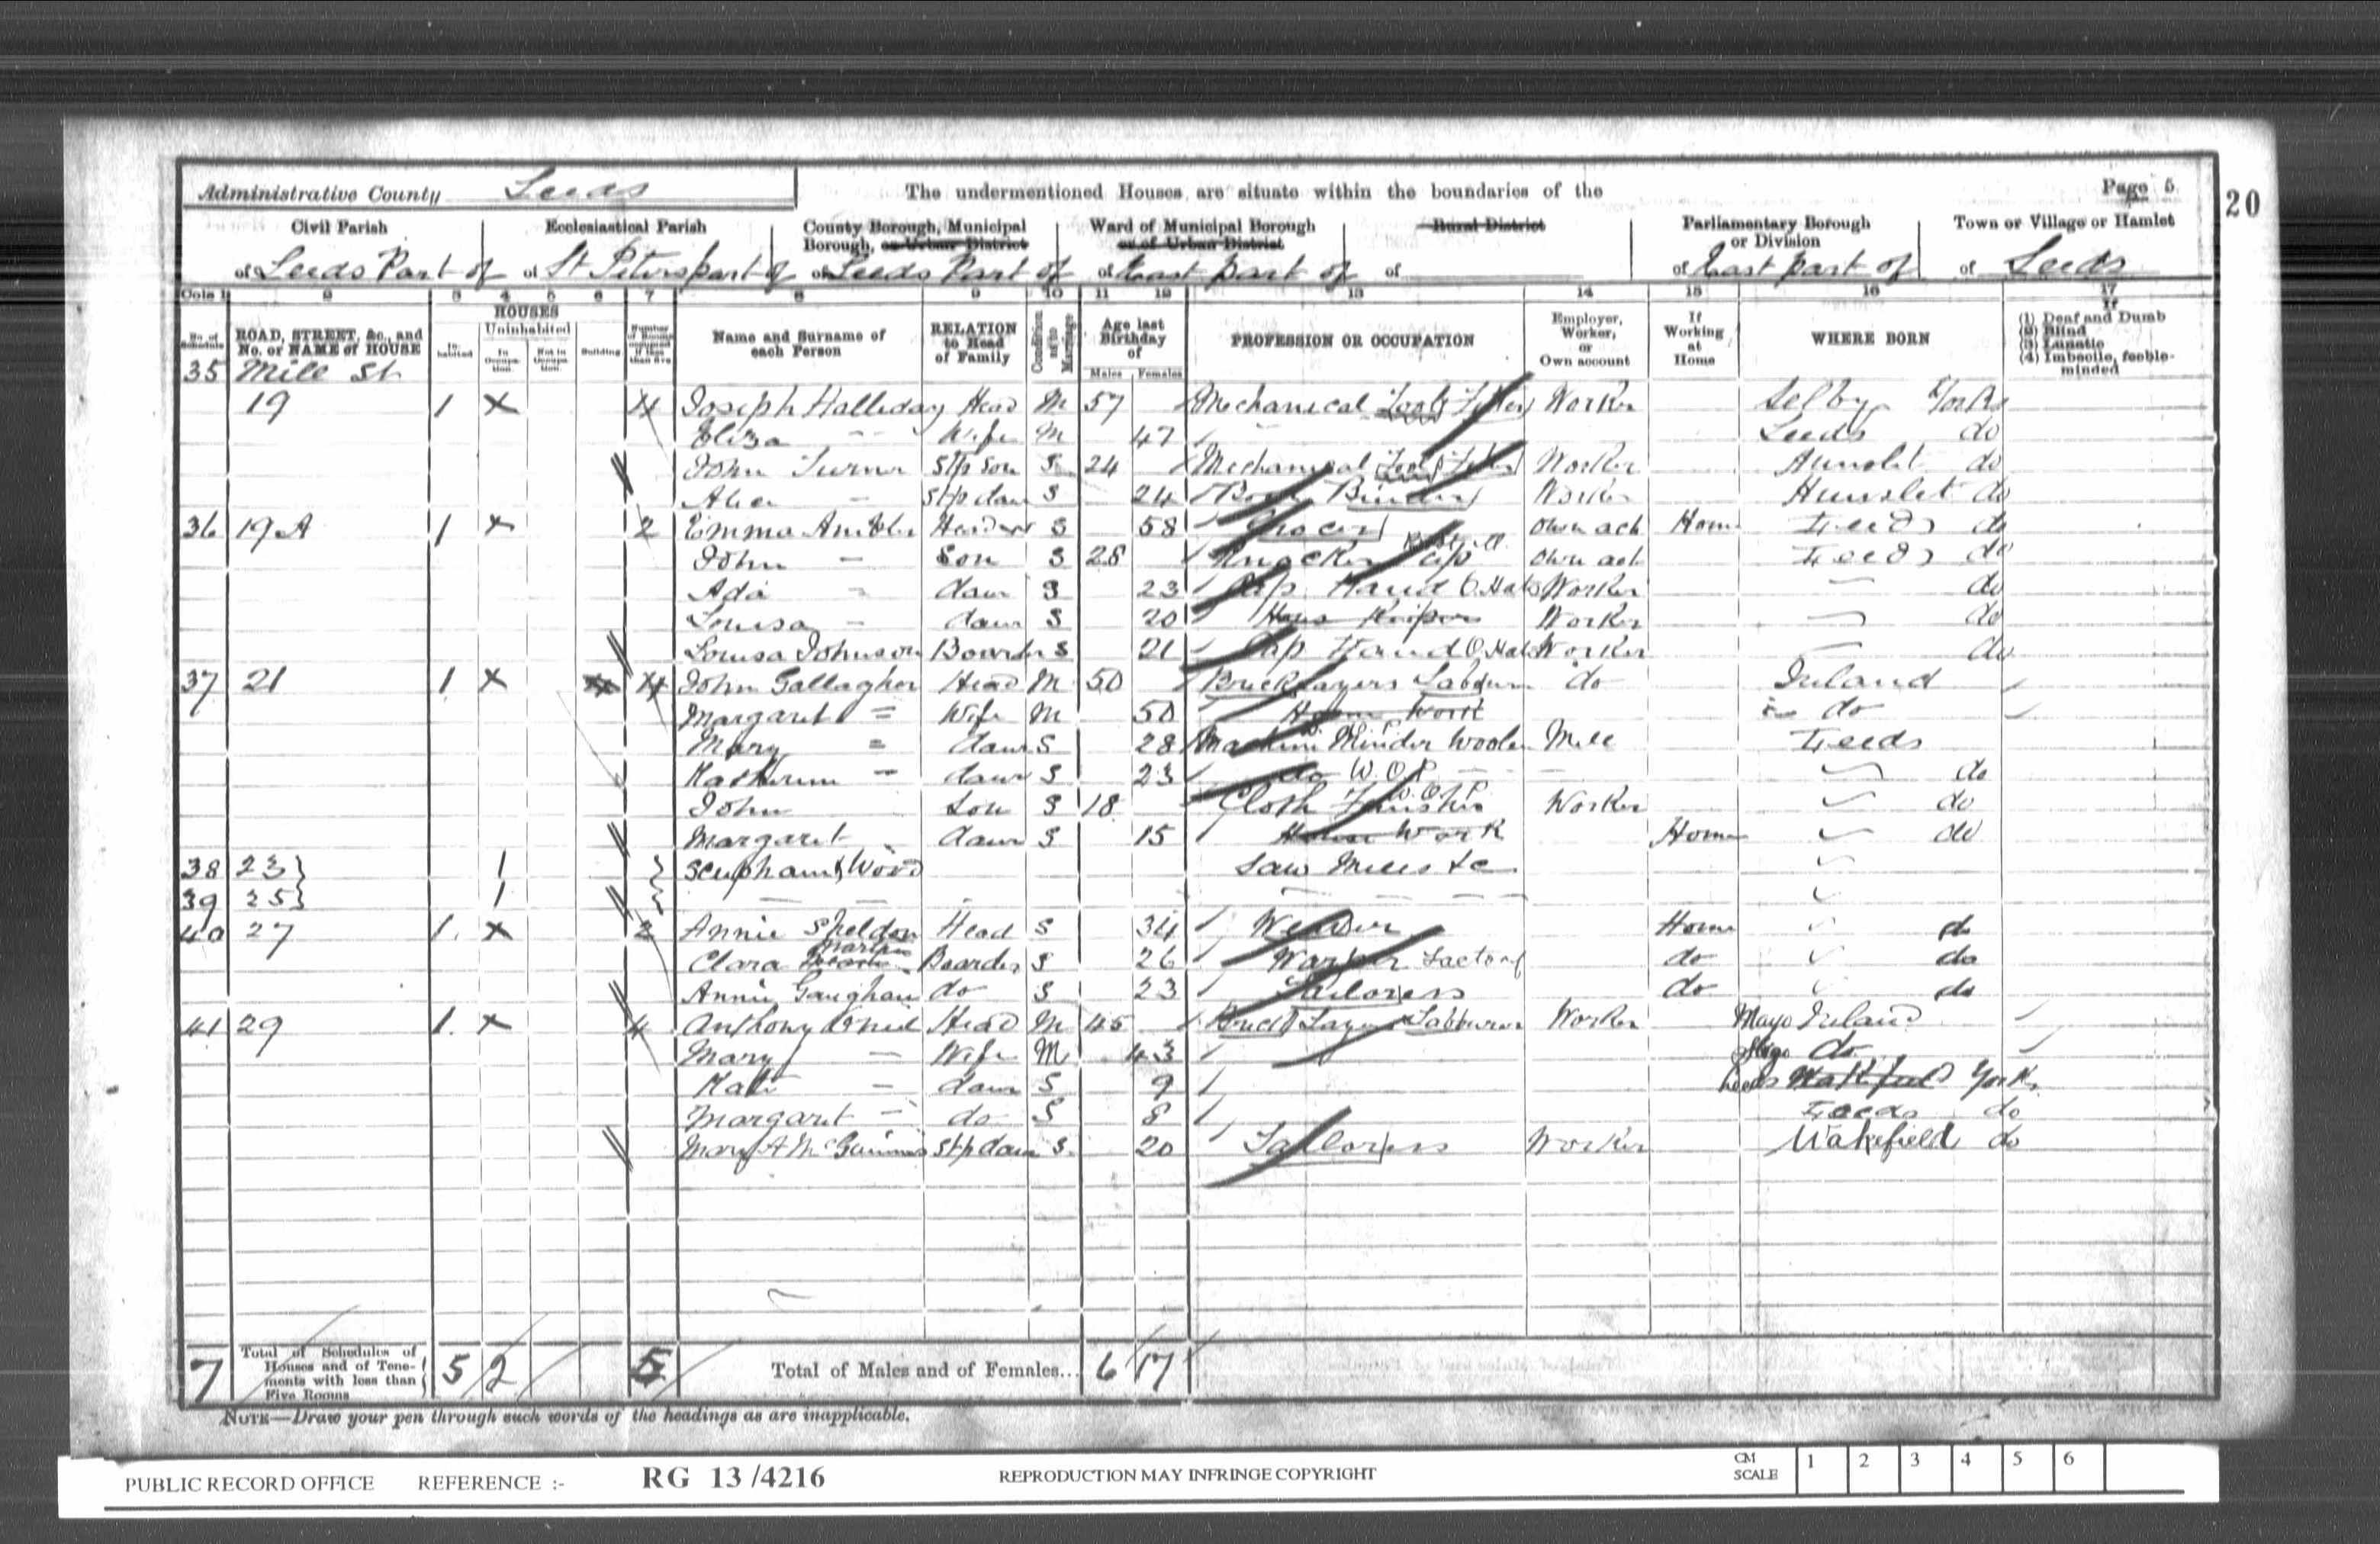 Administrative County Leeds
The undermentioned Houses are situate within the boundaries of the
Page 5
20
Civil Parish of Leeds Part of
Ecclesiastical Parish of St Peters part of
County Borough, Municipal Borough, or Urban District of Leeds Part of
Ward of Municipal Borough or of Urban District of East part of
Rural District of
Parliamentary Borough or Division of East part of
Town or Village or Hamlet of Leeds
Cols 1 2 3 4 5 6 7 8 9 10 11 12 13 14 15 16 17
No. of Schedule
ROAD, STREET, &c., and No. or NAME of HOUSE
HOUSES
Inhabited
Uninhabited
In Occupation.
Not in Occupation.
Building
Name and Surname of each Person
RELATION to Head of Family
Condition as to Marriage
Age last Birthday of
Males Females
PROFESSION OR OCCUPATION
Employer, Worker, or Own account
If Working at Home
WHERE BORN
If
(1) Deaf and Dumb
(2) Blind
(3) Lunatic
(4) Imbecile, feeble-minded
35 Mill St
19 1 x 4 Joseph Halliday Head M 57 Mechanical Tool Fitter Worker Selby Yorks
Eliza - Wife M 47 Leeds do
John Turner Stp Son S 24 Mechanical Tool Fitter Worker Hunslet do
Alice - Stp daur S 24 Book Binder Worker Hunslet do
36 19A 1 x 2 Emma Ambler Head S 58 Grocer Own act Home Leeds do
John - Son S 28 Knocker up Own act Leeds do
Ada - daur S 23 Cap Hand Worker do
Louisa - daur S 20 House Keeper Worker do
Louisa Johnson Boarder S 21 Cap Hand Worker do
37 21 1 x 4 John Gallagher Head M 50 Bricklayers Labourer do Ireland
Margaret = Wife M 50 Home Work do
Mary = daur S 28 Machine Minder Woolen Mill Leeds
Katherine - daur S 23 do do
John Son S 18 Cloth Finisher Worker do
Margaret daur S 15 House Work Home do
38 23 1 Scupham & Wood Saw Mills &c
39 25 1 - - - - - -
40 27 1 x 2 Annie Sheldon Head S 34 Weaver Home do
Clara Boarder S 26 Warper Factory do do
Annie Gaughan do S 23 Tailoress do do
41 29 1 x 4 Anthony Oneil Head M 45 Brick Layers Labourer Worker Mayo Ireland
Mary - Wife M 43 Sligo do
Kate - daur S 9 Leeds Wakefield York
Margaret - do S 8 Leeds do
Mary A Stp daur S 20 Tailoress Worker Wakefield do
7 Total of Schedules of Houses and of Tenements with less than Five Rooms 5 2 5 Total of Males and of Females... 6 17
NOTE—Draw your pen through such words of the headings as are inapplicable.
PUBLIC RECORD OFFICE REFERENCE :- RG 13 /4216 REPRODUCTION MAY INFRINGE COPYRIGHT CM SCALE 1 2 3 4 5 6